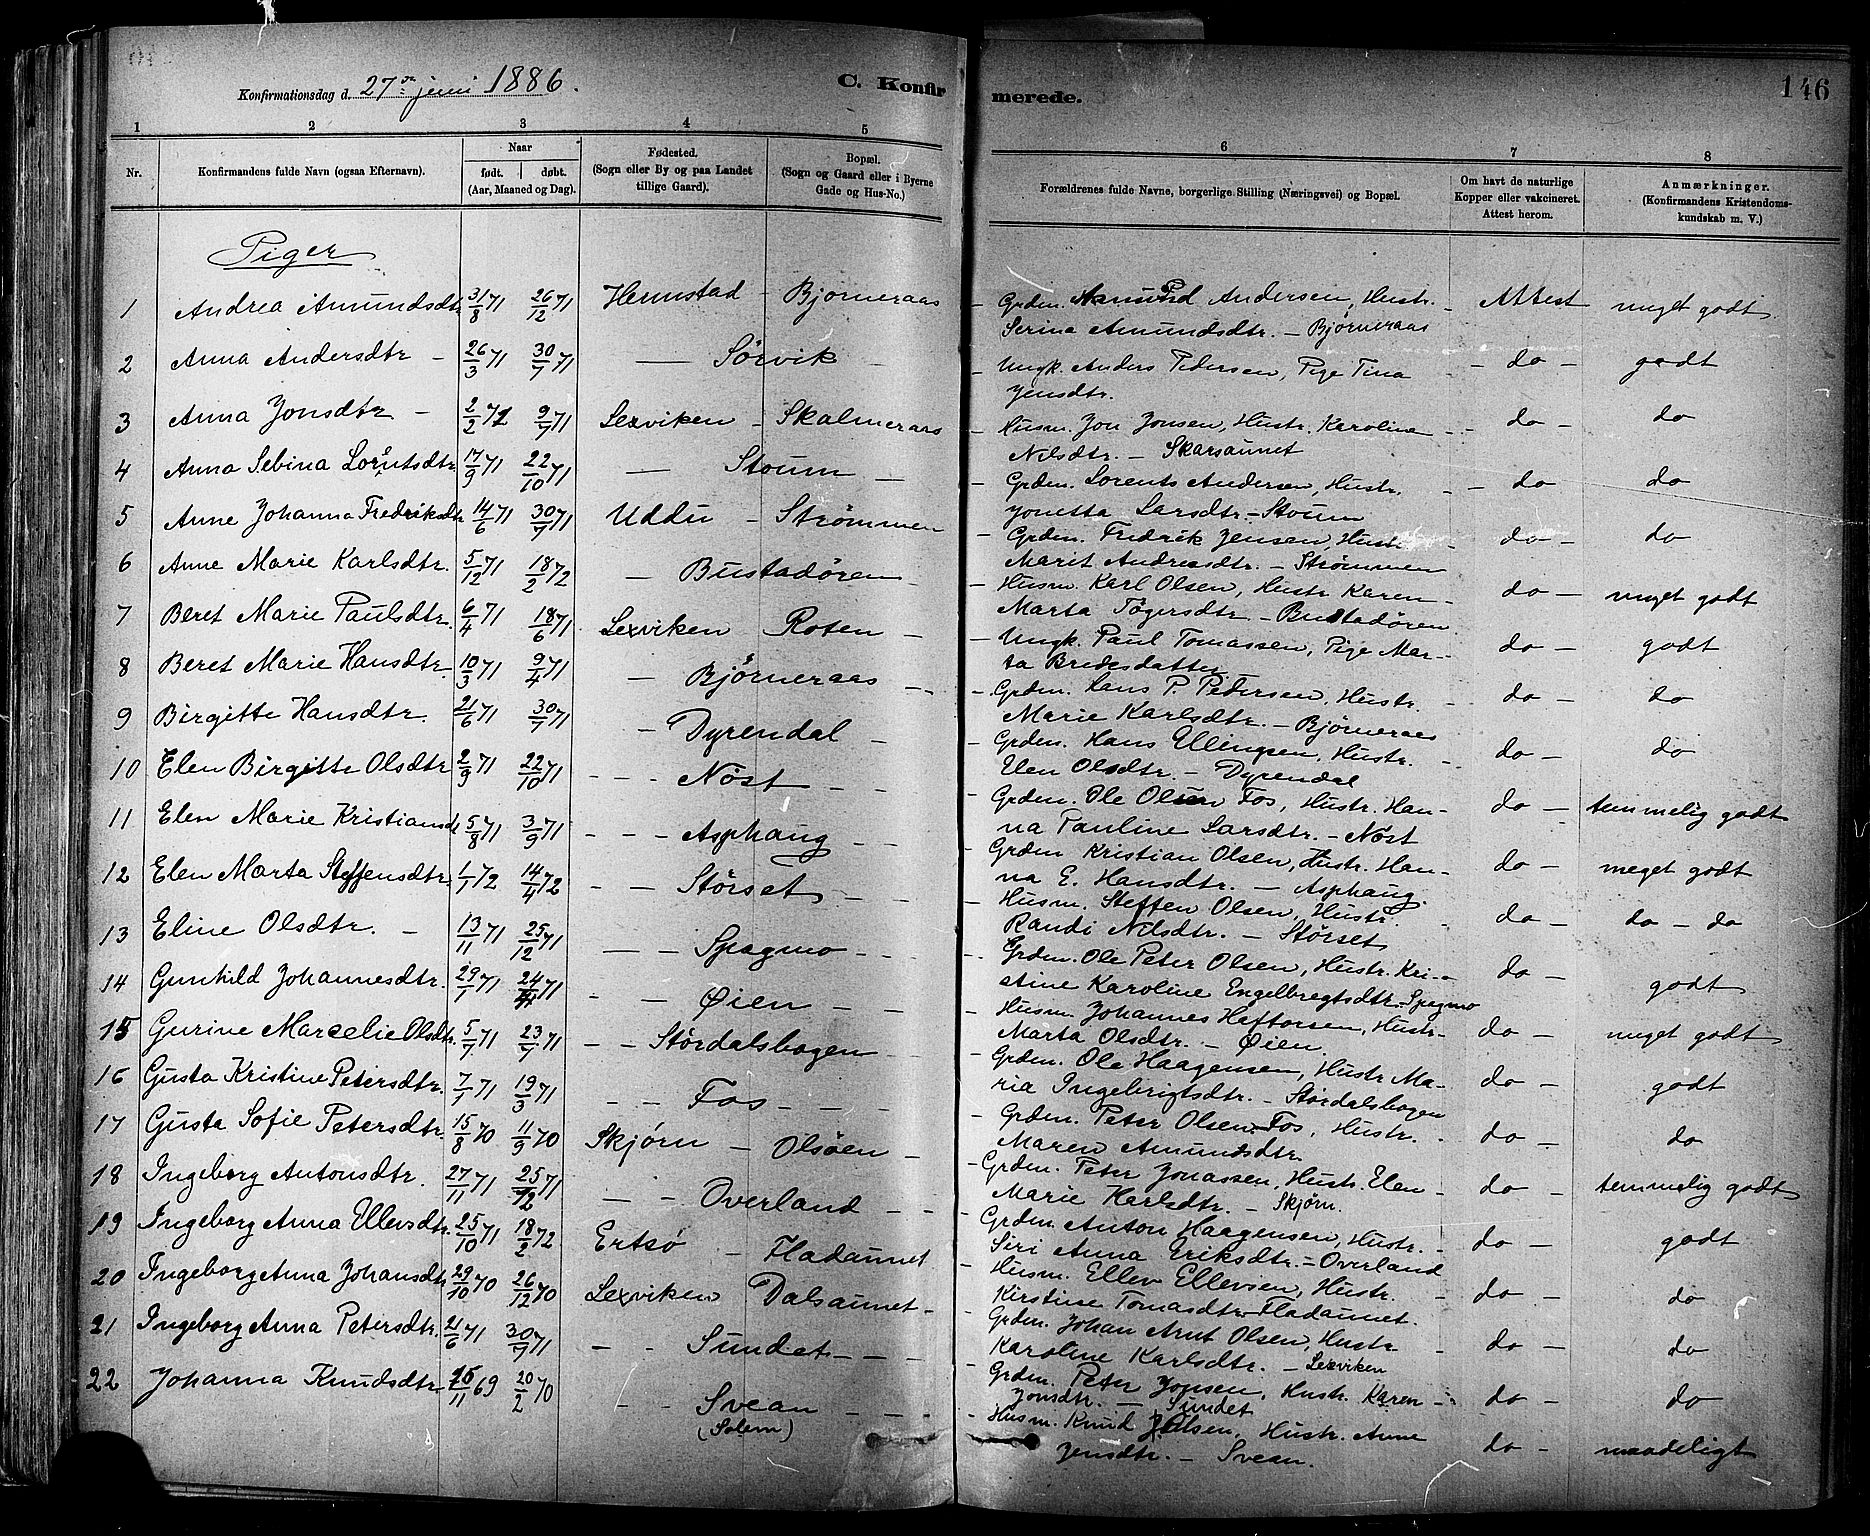 Konfirmationsdag d. 27de juni 1886.
C. Konfirmerede.
146
1 2 3 4 5 6 7 8
Nr.
Konfirmandens fulde Navn (ogsaa Efternavn).
Naar
født. døbt.
(Aar, Maaned og Dag).
Fødested.
(Sogn eller By og paa Landet
tillige Gaard).
Bopæl.
(Sogn og Gaard eller i Byerne
Gade og Hus-No.)
Forældrenes fulde Navne, borgerlige Stilling (Næringsvei) og Bopæl.
Om havt de naturlige
Kopper eller vakcineret.
Attest herom.
Anmærkninger.
(Konfirmandens Kristendoms-
kundskab m. V.)
Piger
1 Andrea Amundsdtr 31/8 71 26/12 71 Hermstad - Bjørneraas - Grdm. Amund Andersen, Hustr. - Attest meget godt.
Serina Amundsdtr. - Bjørneraas
2 Anna Andersdtr - 26/3 71 30/7 71 — Sörvik - - Ungk. Anders Pedersen, Pige Tina - do - godt
Jensdtr.
3 Anna Jonsdtr - 2/2 71 9/7 71 Lexviken - Skalmeraas - Husm. Jon Jonsen, Hustr. Karoline - do - do
Nilsdtr. - Skarsaunet
4 Anna Sebina Lorentsdtr 17/9 71 22/10 71 — Stoum — - Grdm. Lorents Andersen, Hustr. - do - do
Jonetta Larsdtr - Stoum
5 Anne Johanna Fredriksdtr 14/6 71 30/7 71 Uddu - Strömmen - Grdm. Fredrik Jensen, Hustr. - do - do
Marit Andreasdtr. - Strømmen
6 Anne Marie Karlsdtr. 5/12 71 18/2 72 - Bustadören - - Husm. Karl Olsen, Hustr. Karen - do - meget godt
Marta Tögersdtr - Bustadören
7 Beret Marie Paulsdtr. 6/4 71 18/6 71 Lexviken Roten - - Ungk. Paul Tomassen, Pige Mar- do - godt
ta Bredesdatter
8 Beret Marie Hansdtr. 10/3 71 9/4 71 - Bjørneraas - - Grdm. Hans P. Pedersen, Hustr. - do - do
Marie Karlsdtr. - Bjørneraas
9 Birgitte Hansdtr. 21/6 71 30/7 71 - Dyrendal - - Grdm. Hans Ellingsen, Hustr. - do - do
Elen Olsdtr. - Dyrendal
10 Elen Birgitte Olsdtr 2/9 71 22/10 71 - - - Nöst - - - Grdm. Ole Olsen Fos, Hustr. Han- do - temmelig godt
na Pauline Larsdtr. - Nöst
11 Elen Marie Kristiansdtr 5/8 71 3/9 71 - - - Asphaug - - - Grdm Kristian Olsen, Hustr. Han- do - meget godt
na E. Hansdtr. - Asphaug.
12 Elen Marta Steffensdtr. 1/1 72 14/4 72 - - Störset - - - Husm. Steffen Olsen, Hustr. - do - do - do
Randi Nilsdtr. - Störset
13 Eline Olsdtr. - 13/11 71 25/12 71 - - Spagmo - - - Grdm. Ole Peter Olsen, Hustr. Kri- do - godt
stine Karoline Engelbregtsdtr - Spagmo
14 Gunhild Johannesdtr. 29/1 71 - - Øien - - - Husm. Johannes Heftorsen, Hustr. do - meget godt
Marta Olsdtr. - Øien
15 Gurine Marcelie Olsdtr. 5/7 71 23/7 71 - - Stördalsbogen - Grdm. Ole Haagensen, Hustr. Ma- do - godt
ria Ingebrigtsdtr. - Stördalsbogen
16 Gusta Kristine Petersdtr. 7/1 71 19/3 71 - - Fos - - - - Grdm. Peter Olsen Fos, Hustr. - do - do
Maren Amundsdtr.
17 Gusta Sofie Petersdtr. 15/8 70 11/9 70 Skjörn - Olsöen - - Grdm. Peter Jonassen, Hustr. Elen - do - temmelig godt
Marie Karlsdtr. - Skjörn.
18 Ingeborg Antonsdtr. 27/11 71 25/12 71 - - Overland - - - Grdm. Anton Haagensen, Hustr. - do - godt
Siri Anna Eriksdtr. - Overland
19 Ingeborg Anna Ellevsdtr. 25/10 71 18/2 72 Ertsö - Fladaunet - Husm. Ellev Ellevsen, Hustr. - do - do
Kirstine Tomasdtr - Fladaunet.
20 Ingeborg Anna Johansdtr. 29/10 70 26/12 70 Lexviken Dalsaunet - - Grdm. Johan Arnt Olsen, Hustr. - do - do
Karoline Karlsdtr. - Lexviken
21 Ingeborg Anna Petersdtr. 21/6 71 30/7 71 - - Sundet - - - - Grdm. Peter Jonsen, Hustr. Karen - do - do
Jonsdtr. - Sundet
22 Johanna Knudsdtr 15/11 69 20/2 70 - - Svean - - - - Husm. Knud Olsen, Hustr. Anne do - maadeligt
(Solem) Jensdtr. - Svean.